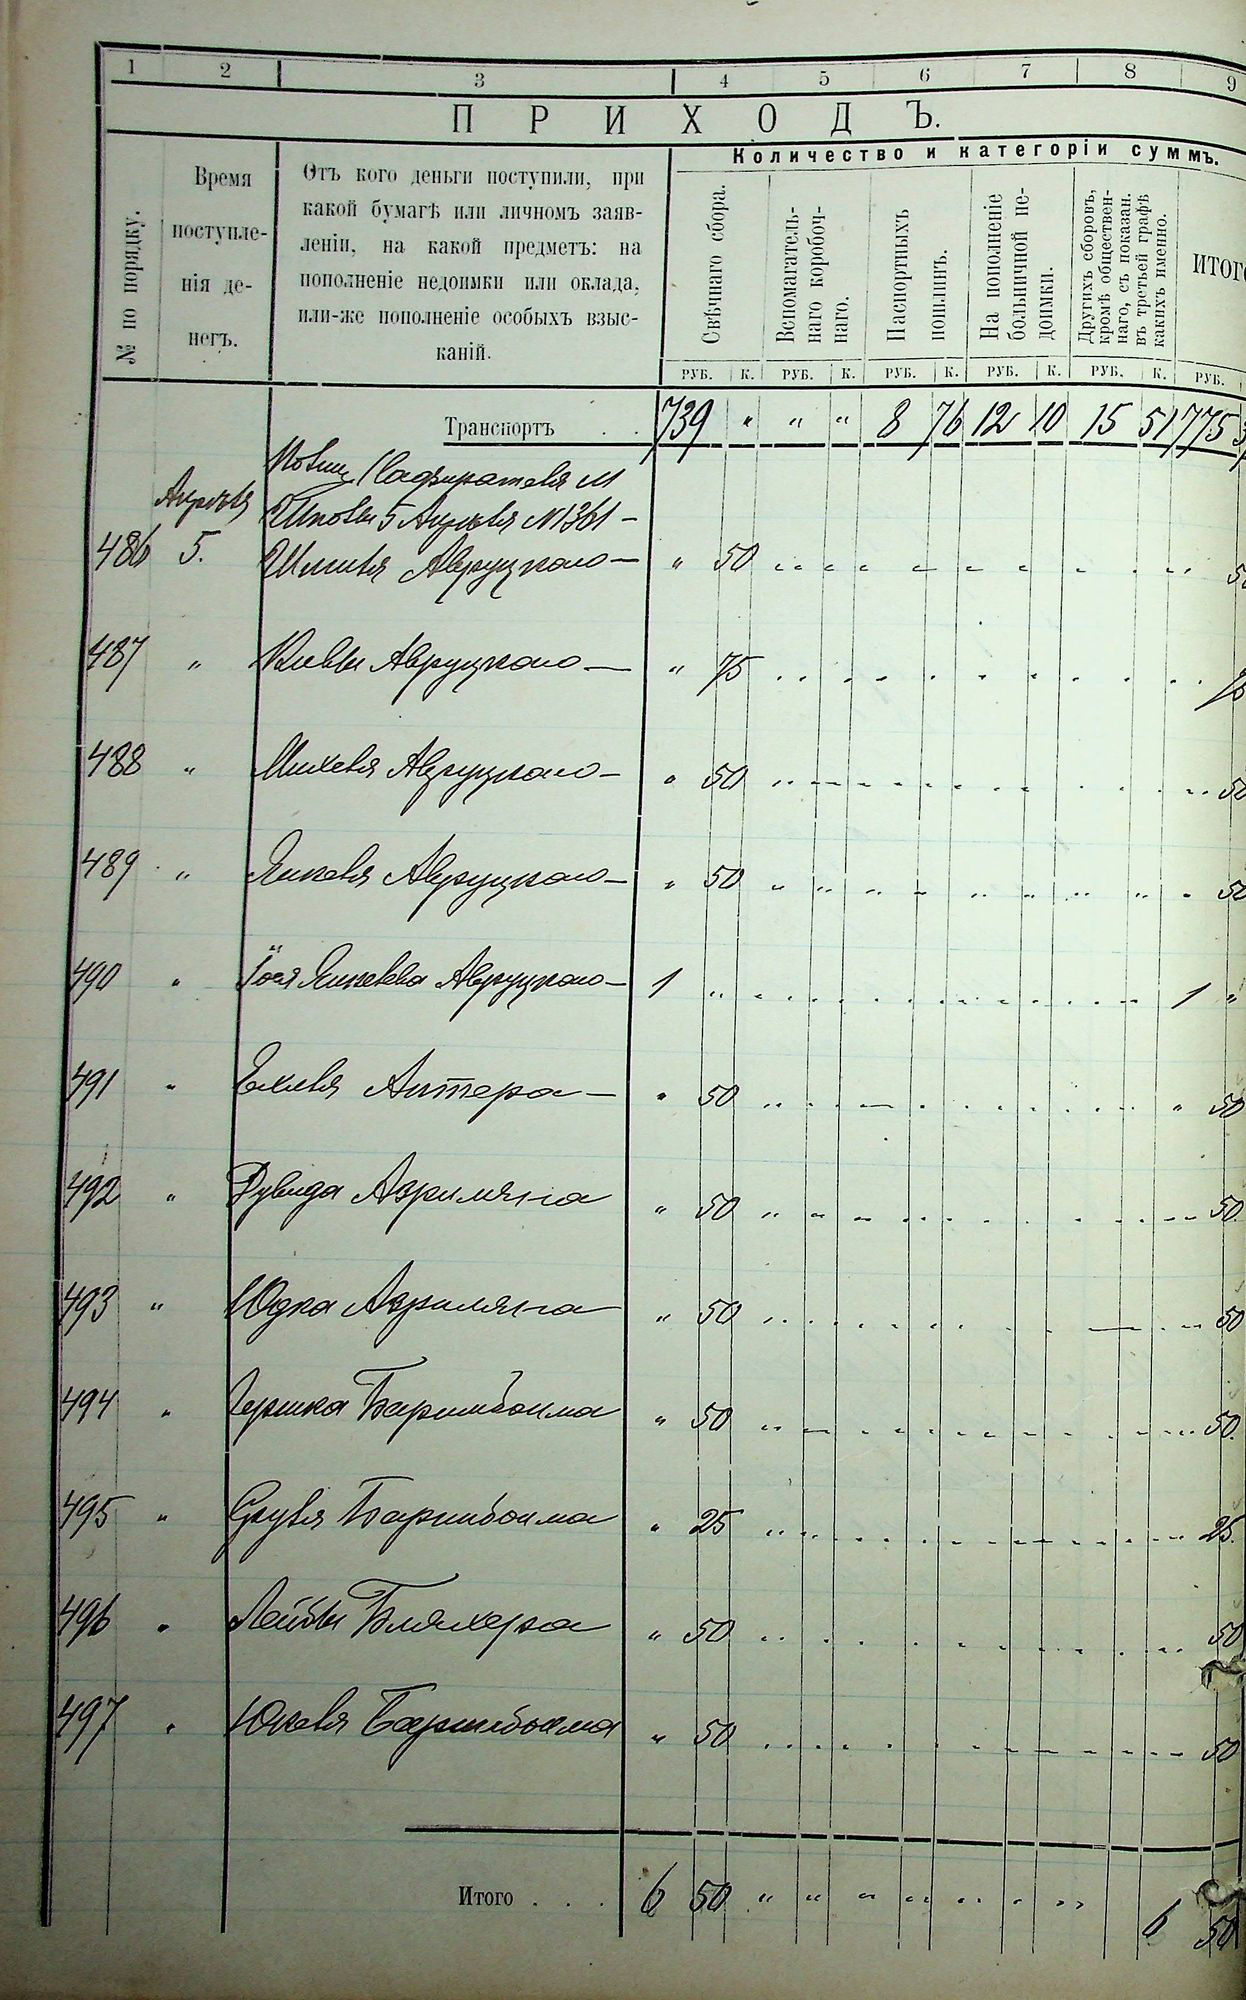 1 2 3 4 5 6 7 8 9
ПРИХОДЪ.
Количество и категоріи суммъ.
№ по порядку.
Время
поступле-
нія де-
негъ.
Отъ кого деньги поступили, при
какой бумагѣ или личномъ заяв-
леніи, на какой предметъ: на
пополненіе недоимки или оклада,
или-же пополненіе особыхъ взыс-
каній.
Свѣчнаго сбора.
Вспомагатель-
наго коробоч-
наго.
Паспортныхъ
пошлинъ.
На пополненіе
больничной не-
доимки.
Другихъ сборовъ,
кромѣ обществен-
наго, съ показан.
въ третьей графѣ
какихъ именно.
ИТОГО
РУБ. К. РУБ. К. РУБ. К. РУБ. К. РУБ. К. РУБ.
Транспортъ . . 739 " " " 8 76 12 10 15 51 775
Апрѣля 5 Апрѣля №1361 -
486 5. Авруцкаго - " 50
487 " Авруцкаго - " 75
488 " Михеля Авруцкаго - " 50 50
489 " Янкеля Авруцкаго - " 50 50
490 " Іося Янкелева Авруцкаго - 1 " 1 "
491 " Ехиля Аптера - " 50 " 50
492 " Дувида Азриляна " 50 50
493 " Юдка Азриляна " 50 50
494 " Гершка Баримбойма " 50 50.
495 " Сруля Баримбойма " 25 25.
496 " Лейбы Бляхера " 50 50
497 " Юкеля Баримбойма " 50 50
Итого . . . 6 50 6 50